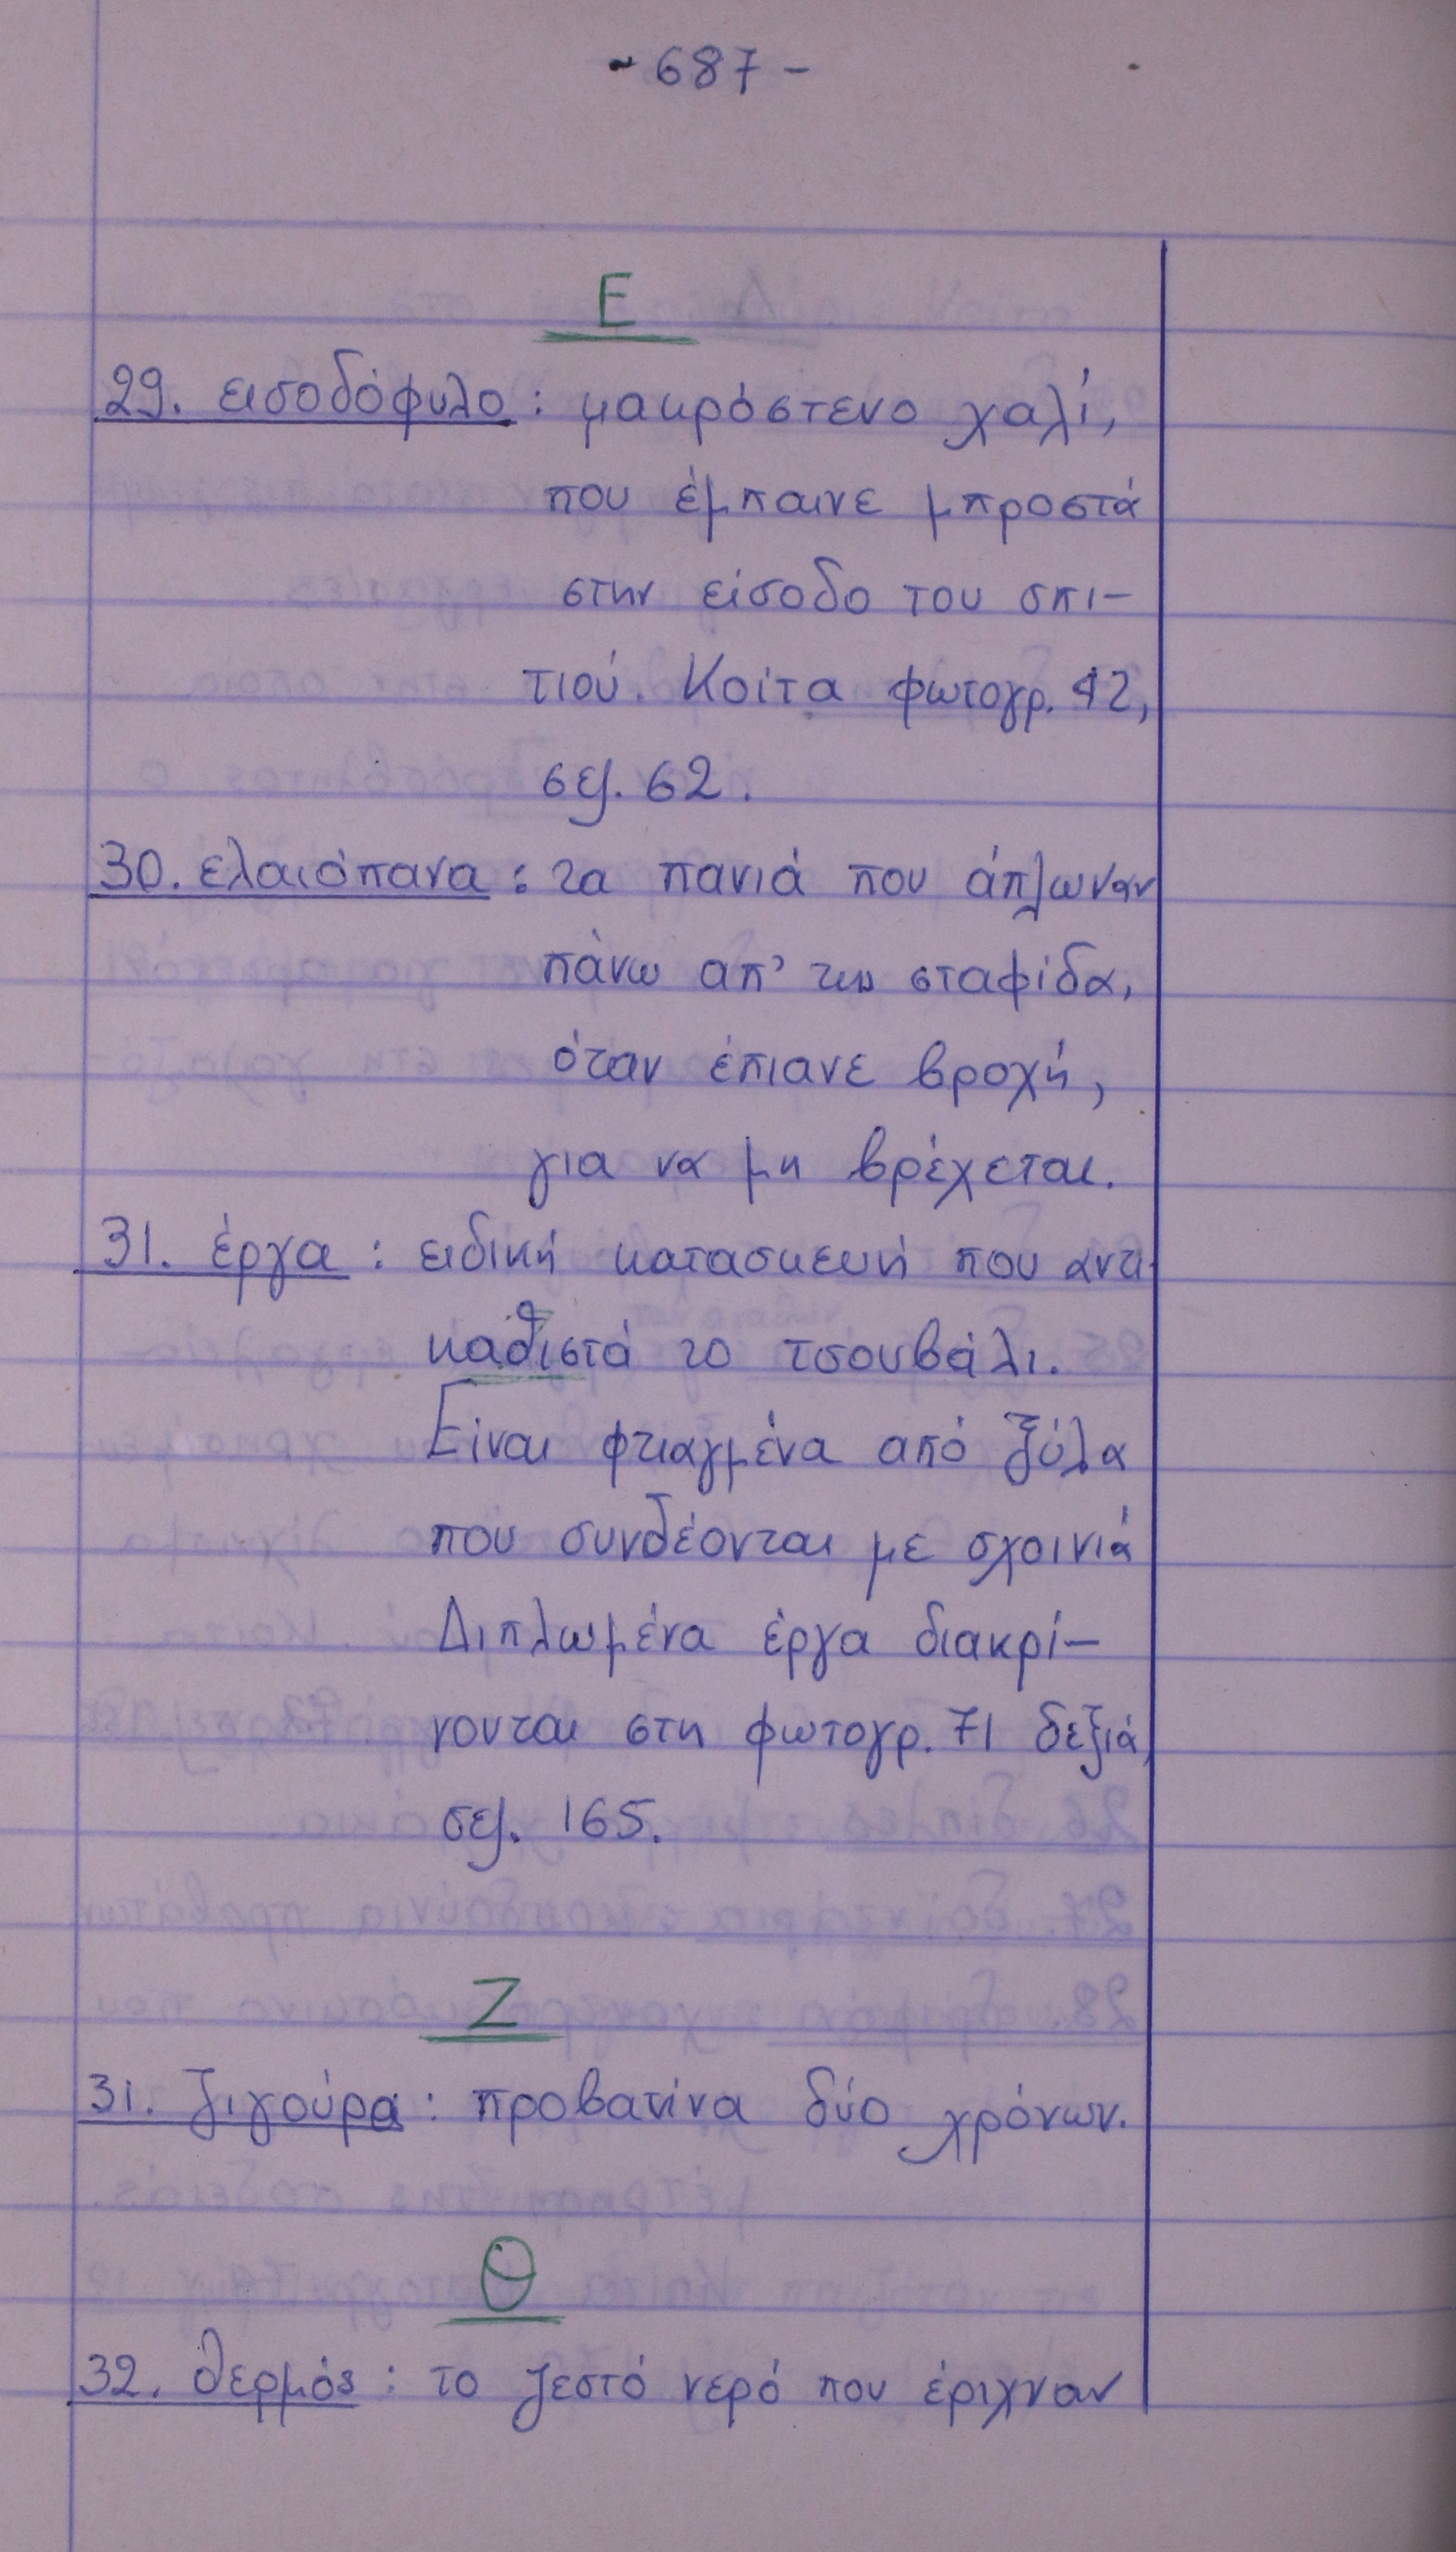 - 687 -
Ε
29. εισοδόφυλο : μακρόστενο χαλί,
που έμπαινε μπροστά
στην είσοδο του σπι-
τιού. Κοίτα φωτογρ. 42,
σελ. 62.
30. ελαιόπανα : τα πανιά που άπλωναν
πάνω απ' την σταφίδα,
όταν έπιανε βροχή,
για να μη βρέχεται.
31. έργα : ειδική κατασκευή που αντι-
καθιστά το τσουβάλι.
Είναι φτιαγμένα από ξύλα
που συνδέονται με σχοινιά
Διπλωμένα έργα διακρί-
νονται στη φωτογρ. 71 δεξιά,
σελ. 165.
Ζ
31. ζιγούρα : προβατίνα δύο χρόνων.
Θ
32. θερμός : το ζεστό νερό που έριχναν